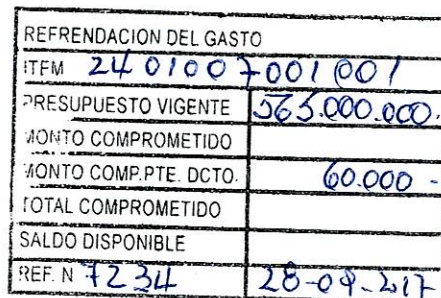 REFRENDACION DEL GASTO
ITEM 24 01007001001
PRESUPUESTO VIGENTE 565.000.000.
MONTO COMPROMETIDO
MONTO COMP.PTE. DCTO. 60.000 -
TOTAL COMPROMETIDO
SALDO DISPONIBLE
REF. N 7234 28-09-217